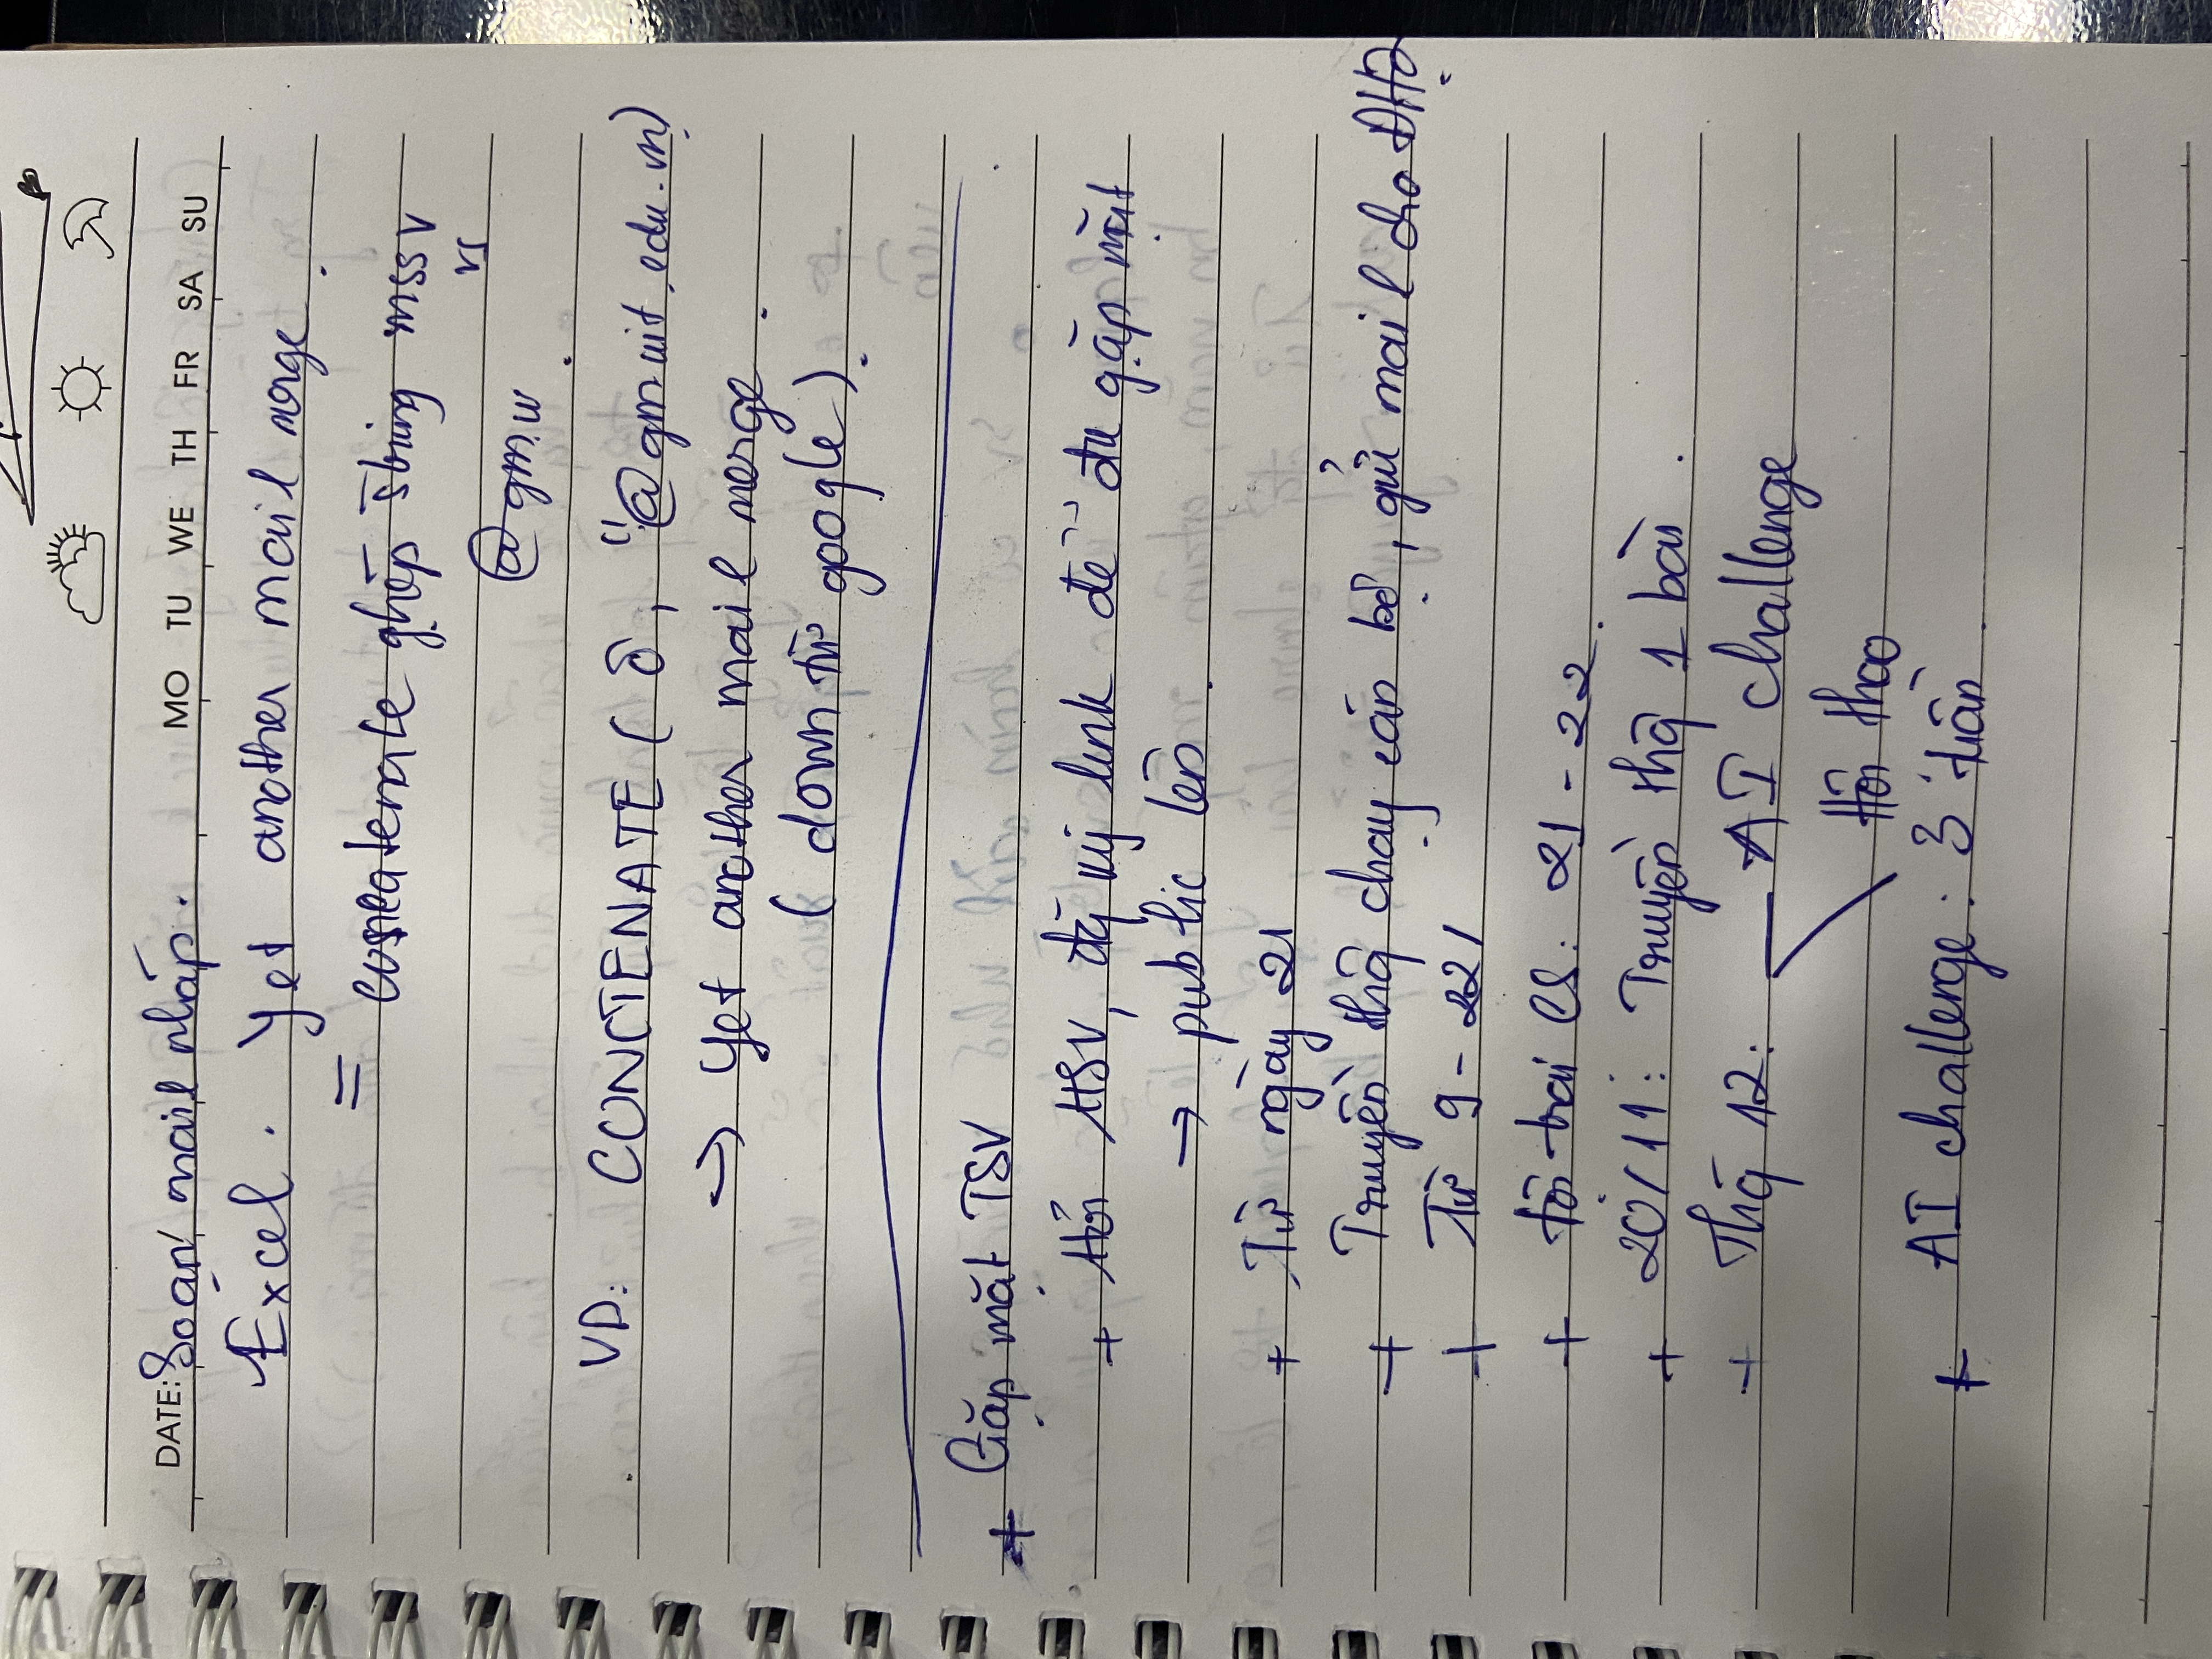 DATE: Soạn mail nháp. MO TU WE TH FR SA SU
Excel. Yet another mail merge.
= concatenate ghép string mssv
vs
@gm.u
VD: CONCTENATE ( ô, "@gm.uit.edu.vn)
→ yet another mail merge.
( down từ google ).
+ Gặp mặt TSV
+ Hỏi HSV, đg ký link để đc gặp mặt
→ public lên.
+ Từ ngày 21
+ Truyền thg chạy cán bộ, gửi mail cho ĐHQ
+ Từ 9 - 22/
+ Hội trại CS: 21 - 22.
+ 20/11: Truyền thg 1 bài.
+ Thg 12: AI challenge
Hội thao
+ AI challenge: 3 tuần.